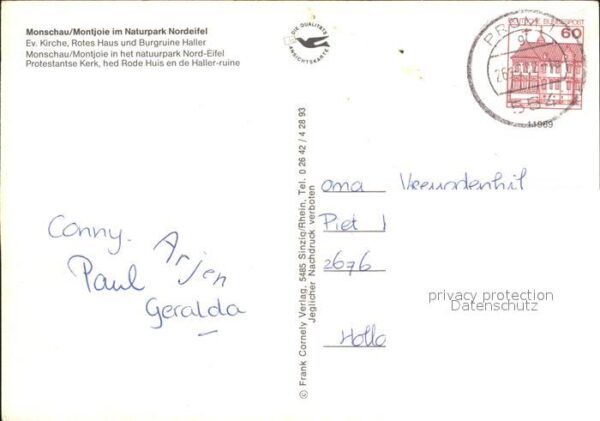 Monschau/Montjoie im Naturpark Nordeifel
Ev. Kirche, Rotes Haus und Burgruine Haller
Monschau/Montjoie in het natuurpark Nord-Eifel
Protestantse Kerk, hed Rode Huis en de Haller-ruine
DIE QUALITÄTS
ANSICHTSKARTE
DEUTSCHE BUNDESPOST
60
PRÜM
554
11969
© Frank Cornely Verlag, 5485 Sinzig/Rhein, Tel. 0 26 42 / 4 28 93
Jeglicher Nachdruck verboten
Conny. Arjen
Paul
Geralda
Oma
Piet
2676
Holla
privacy protection
Datenschutz